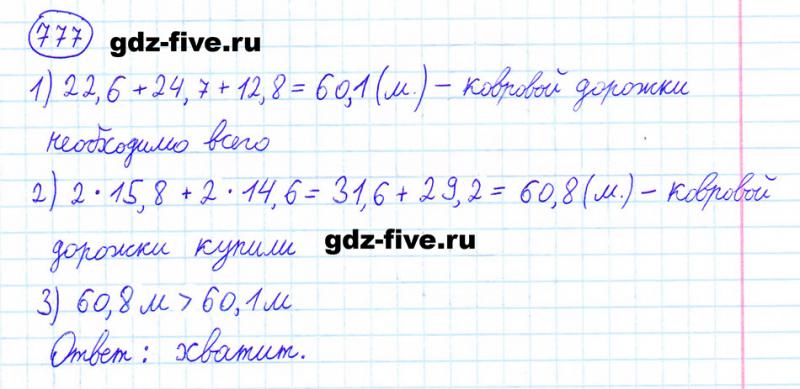 777 gdz-five.ru
1) 22,6 + 24,7 + 12,8 = 60,1 (м.) - ковровой дорожки
необходимо всего
2) 2 · 15,8 + 2 · 14,6 = 31,6 + 29,2 = 60,8 (м.) - ковровой
дорожки купили gdz-five.ru
3) 60,8 м > 60,1 м
Ответ: хватит.